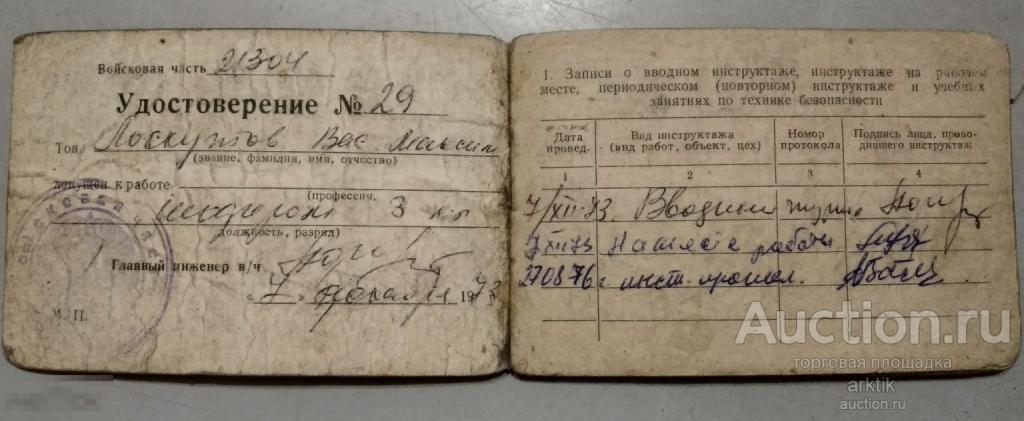 Войсковая часть 21304
Удостоверение № 29
Тов. Лоскутов Вас. Максим
(звание, фамилия, имя, отчество)
допущен к работе
(профессия,
шофером 3 кл
должность, разряд)
Главный инженер в/ч
"7" декабря 1973
М. П.
1. Записи о вводном инструктаже, инструктаже на рабочем
месте, периодическом (повторном) инструктаже и учебных
занятиях по технике безопасности
Дата
провед.
Вид инструктажа
(вид работ, объект, цех)
Номер
протокола
Подпись лица, прово-
дившего инструктаж
1 2 3 4
7/XII-73. Вводный
7 XII 73 На месте работы
270876г инст. прошел.
Auction.ru
торговая площадка
arktik
auction.ru